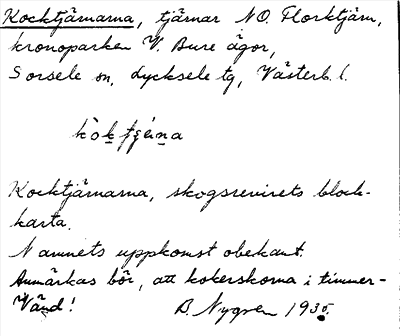 Kocktjärnarna, tjärnar NO. Florktjärn,
kronoparken V. Bure ägor,
Sorsele sn, Lycksele tg, Västerb. l.
Kocktjärnarna, skogsrevirets block-
karta.
Namnets uppkomst obekant.
Anmärkas bör, att kokerskorna i timmer-
Vänd! B. Nygren 1935.